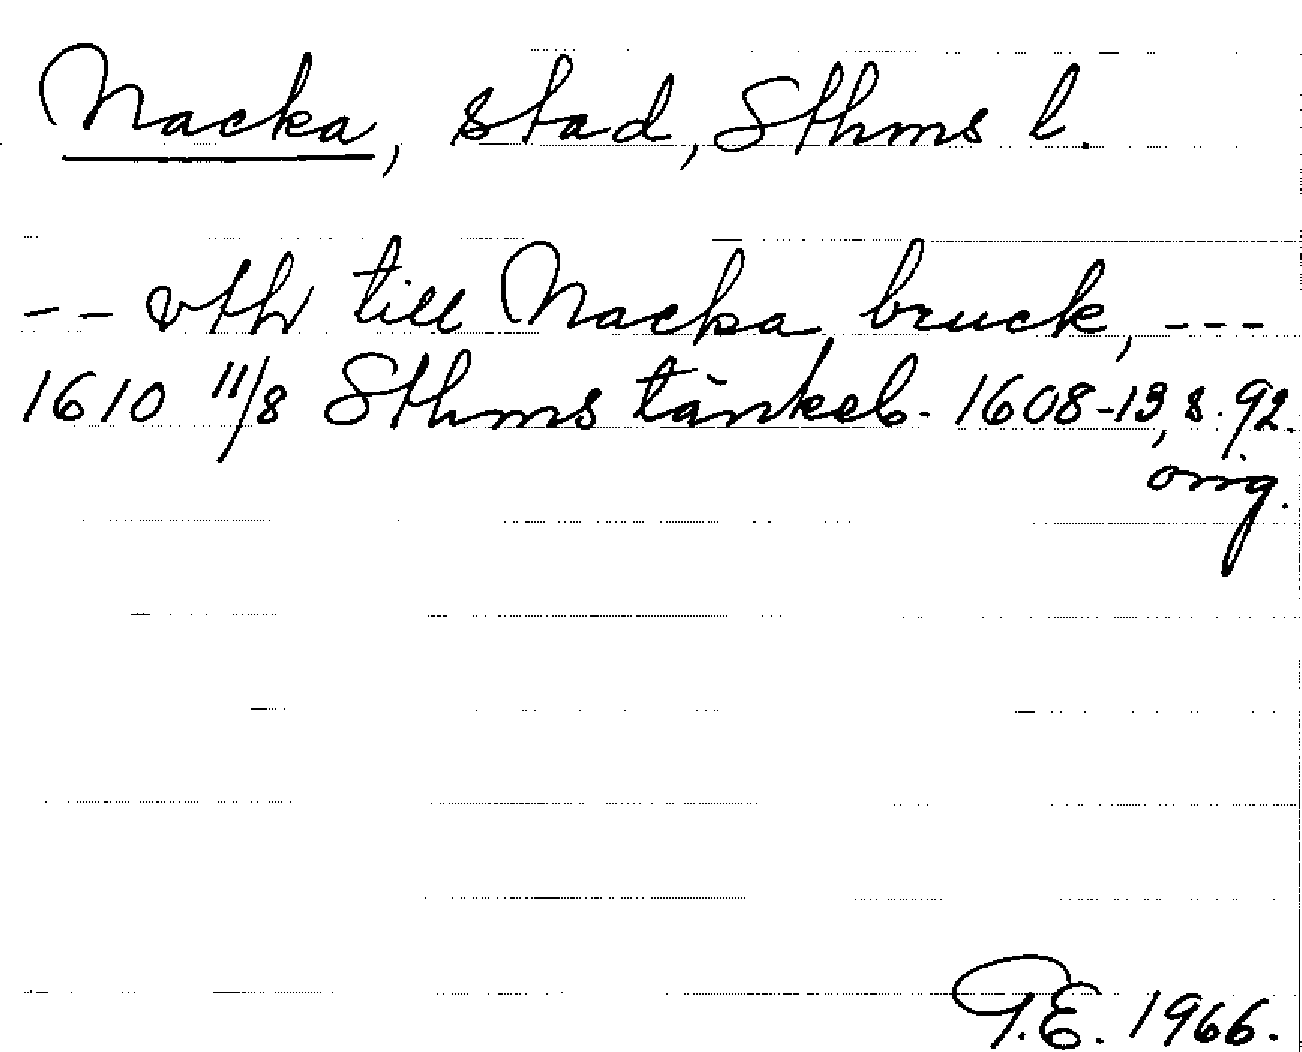 Nacka, stad, Sthms l.
-- vthr till Nacka bruck, ---
1610 11/8 Sthms tänkeb. 1608-13, s. 92.
orig.
G.E. 1966.